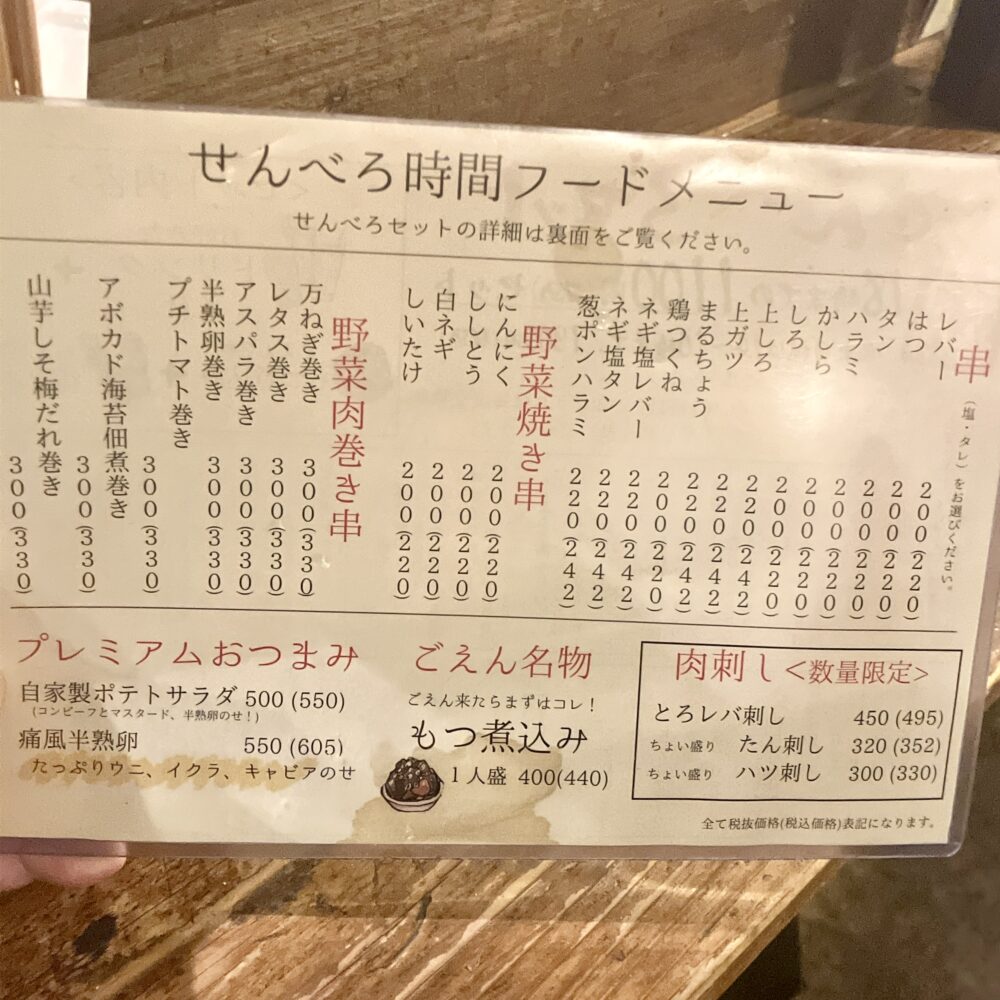 せんべろ時間フードメニュー
せんべろセットの詳細は裏面をご覧ください。
串 (塩・タレ)をお選びください。
レバー 200(220)
はつ 200(220)
タン 200(220)
ハラミ 200(220)
かしら 200(220)
しろ 200(220)
上しろ 220(242)
上ガツ 220(242)
まるちょう 220(242)
鶏つくね 200(220)
ネギ塩レバー 220(242)
ネギ塩タン 220(242)
葱ポンハラミ 220(242)
野菜焼き串
にんにく 200(220)
ししとう 200(220)
白ネギ 200(220)
しいたけ 200(220)
野菜肉巻き串
万ねぎ巻き 300(330)
レタス巻き 300(330)
アスパラ巻き 300(330)
半熟卵巻き 300(330)
プチトマト巻き 300(330)
アボカド海苔佃煮巻き 300(330)
山芋しそ梅だれ巻き 300(330)
プレミアムおつまみ
自家製ポテトサラダ 500 (550)
(コンビーフとマスタード、半熟卵のせ!)
痛風半熟卵 550 (605)
たっぷりウニ、イクラ、キャビアのせ
ごえん名物
ごえん来たらまずはコレ!
もつ煮込み
1人盛 400(440)
肉刺し<数量限定>
とろレバ刺し 450 (495)
ちょい盛り たん刺し 320 (352)
ちょい盛り ハツ刺し 300 (330)
全て税抜価格(税込価格)表記になります。